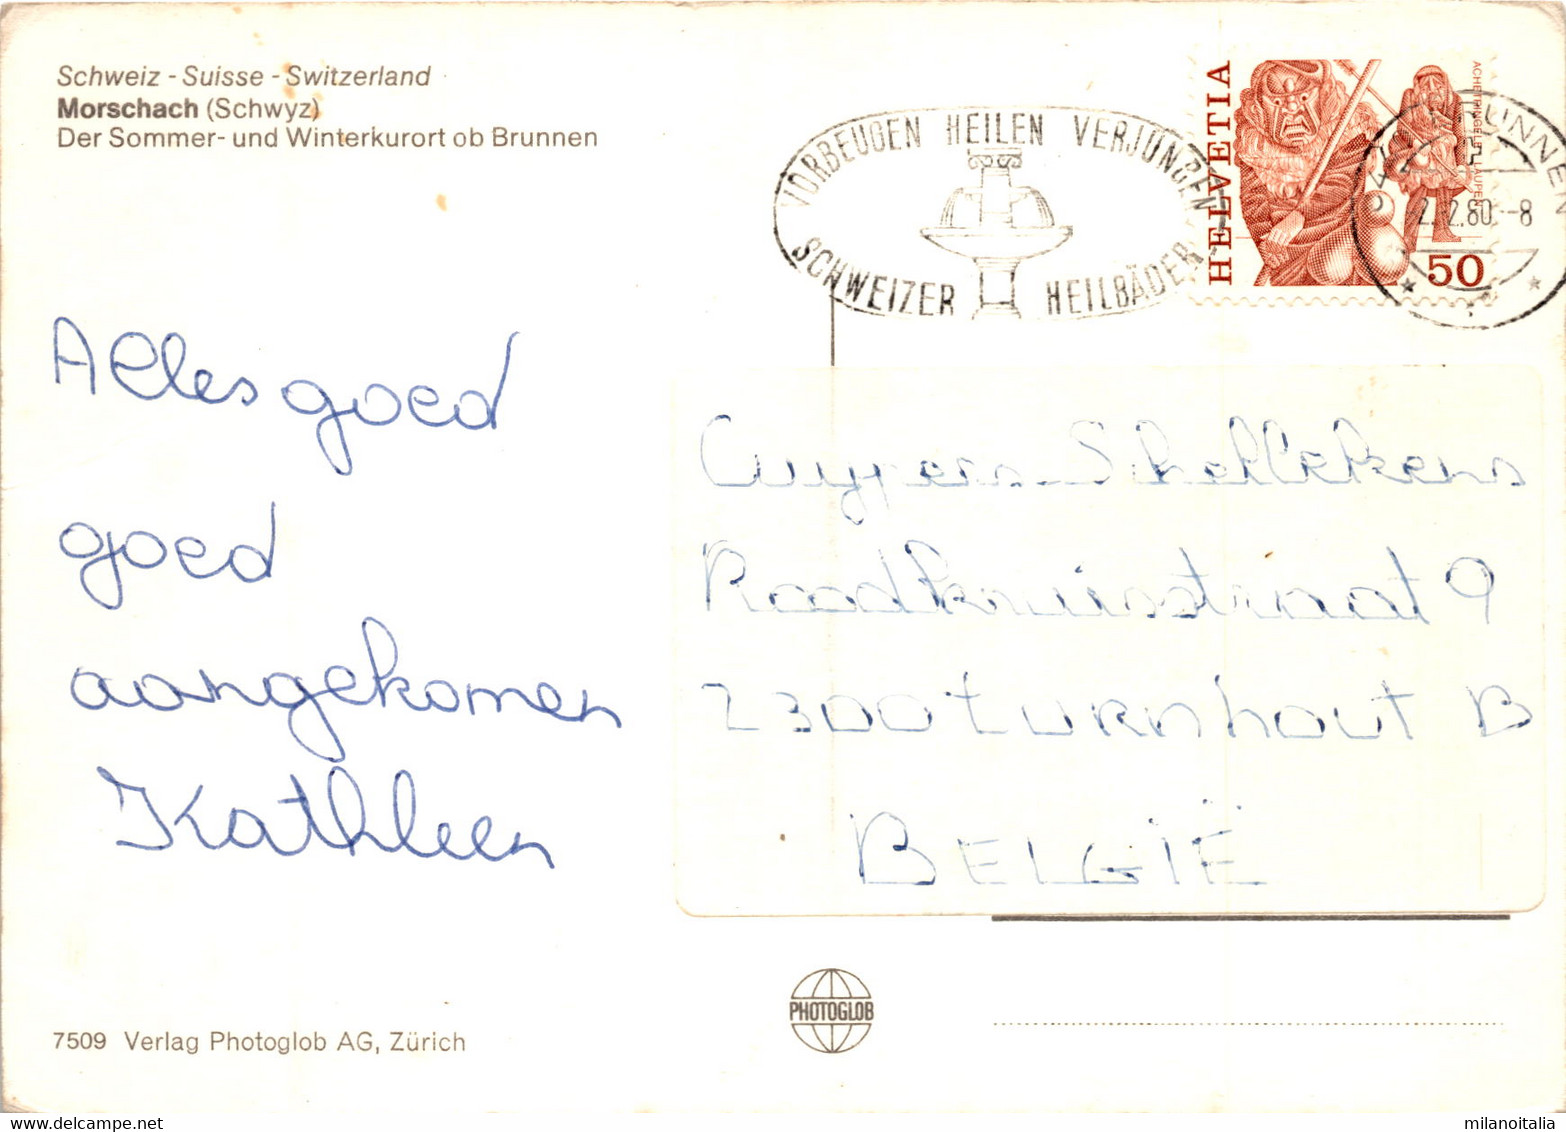 Schweiz - Suisse - Switzerland
Morschach (Schwyz)
Der Sommer- und Winterkurort ob Brunnen
VORBEUGEN HEILEN VERJÜNGEN
SCHWEIZER HEILBÄDER
HELVETIA
50
BRUNNEN
80 -8
Alles goed
goed
aangekomen
Kathleen
Cuypers-Schellekens
Raadkruisstraat 9
2300 Turnhout B
BELGIË
PHOTOGLOB
7509 Verlag Photoglob AG, Zürich
milanoitalia